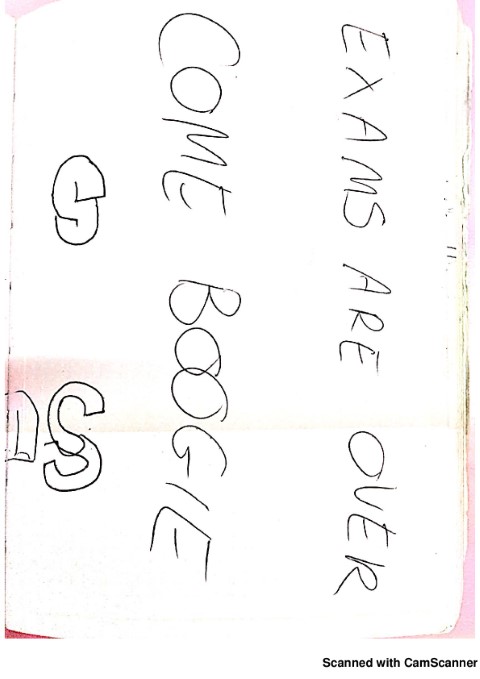 EXAMS ARE OVER
COME BOOGIE
Scanned with CamScanner